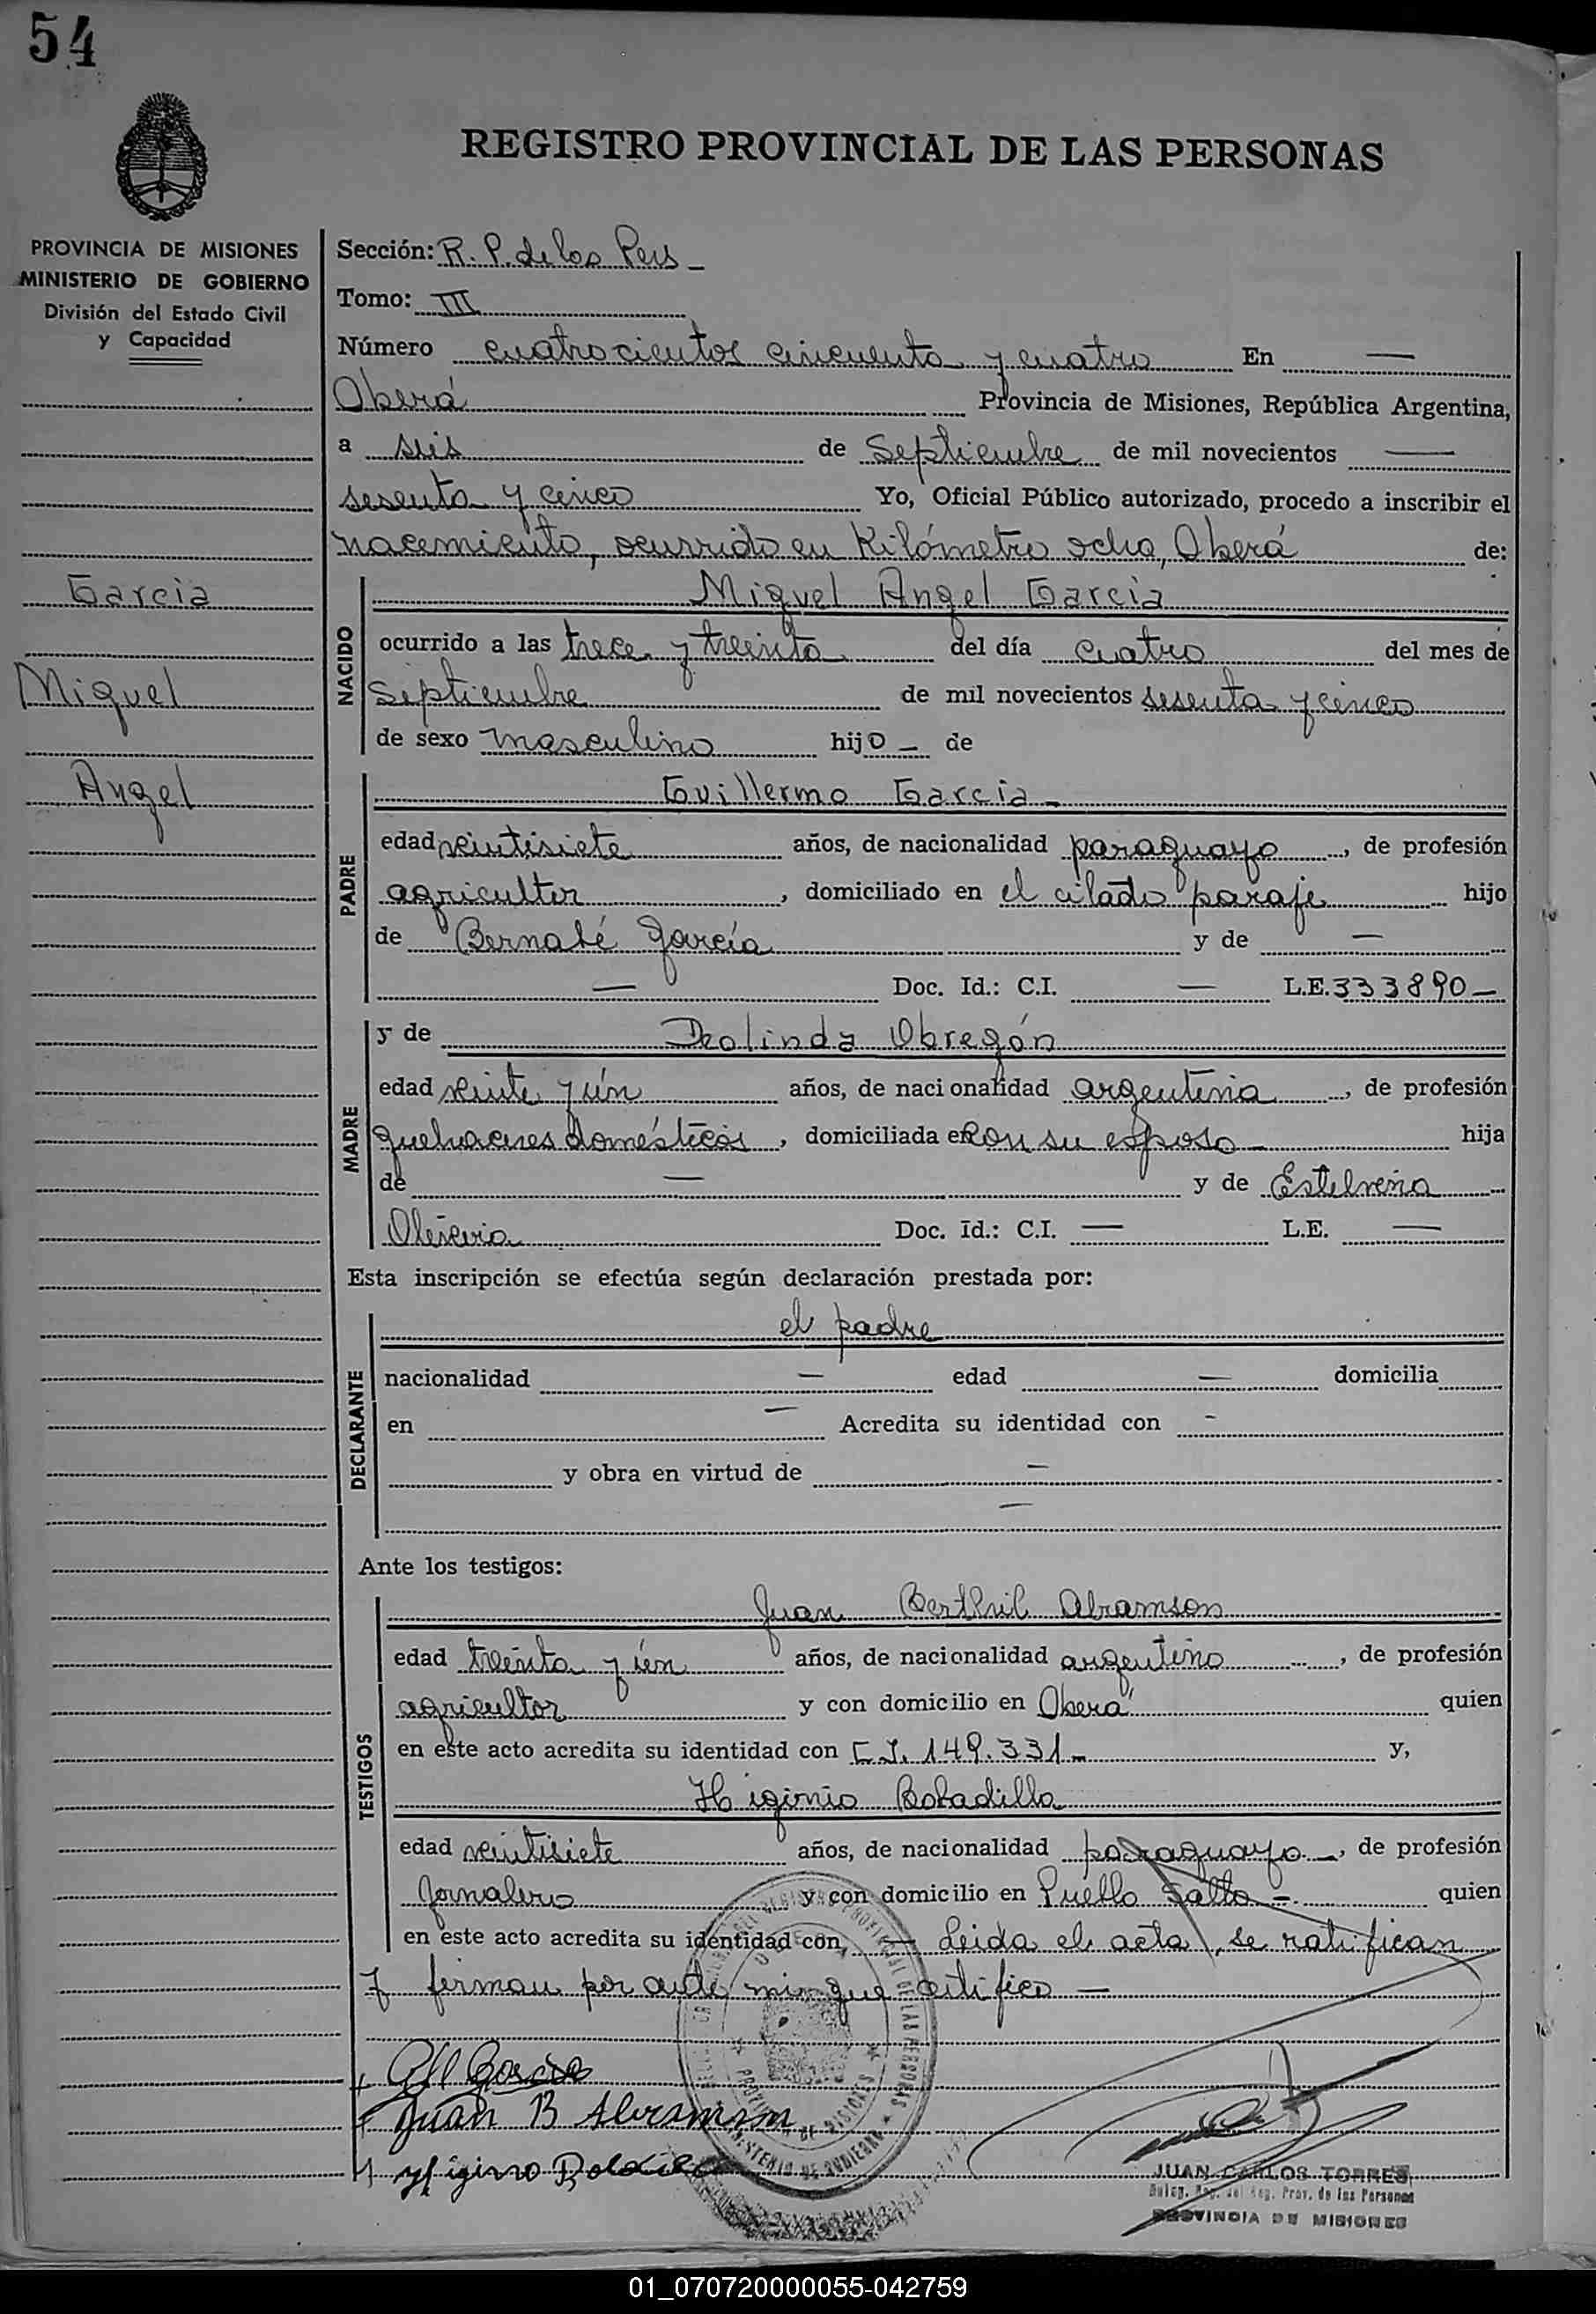 54
REGISTRO PROVINCIAL DE LAS PERSONAS
PROVINCIA DE MISIONES
MINISTERIO DE GOBIERNO
División del Estado Civil
y Capacidad
Garcia
Miguel
Angel
Sección: R. P. de las Pers —
Tomo: III
Número cuatrocientos cincuenta y cuatro En —
Oberá Provincia de Misiones, República Argentina,
a seis de Septiembre de mil novecientos —
sesenta y cinco Yo, Oficial Público autorizado, procedo a inscribir el
nacemiento, ocurrido en Kilómetro ocho, Oberá de:
NACIDO
Miguel Angel Garcia
ocurrido a las trece y treinta del día cuatro del mes de
Septiembre de mil novecientos sesenta y cinco
de sexo masculino hijo — de
PADRE
Guillermo Garcia —
edad veintisiete años, de nacionalidad paraguayo, de profesión
agricultor, domiciliado en el citado paraje hijo
de Bernabé García y de —
— Doc. Id.: C.I. — L.E. 333890 —
MADRE
y de Deolinda Obregón
edad veinte y ún años, de nacionalidad argentina, de profesión
quehaceres domésticos, domiciliada en con su esposo — hija
de — y de
Doc. Id.: C.I. — L.E. —
Esta inscripción se efectúa según declaración prestada por:
DECLARANTE
el padre
nacionalidad — edad — domicilia
en — Acredita su identidad con -
y obra en virtud de —
—
Ante los testigos:
TESTIGOS
Juan Berthil Abramson
edad treinta y ún años, de nacionalidad argentino, de profesión
agricultor y con domicilio en Oberá quien
en este acto acredita su identidad con C.I. 149.331 — y,
Higinio Bobadilla
edad veintisiete años, de nacionalidad paraguayo —, de profesión
Jornalero y con domicilio en Puéblo Salto —. quien
en este acto acredita su identidad con — Leida el acta, se ratifican
y firman por ante mi que certifico —
Garcia
Juan B Abramson
Higinio
JUAN CARLOS TORRES
Reg. Prov. de las Personas
PROVINCIA DE MISIONES
01_070720000055-042759